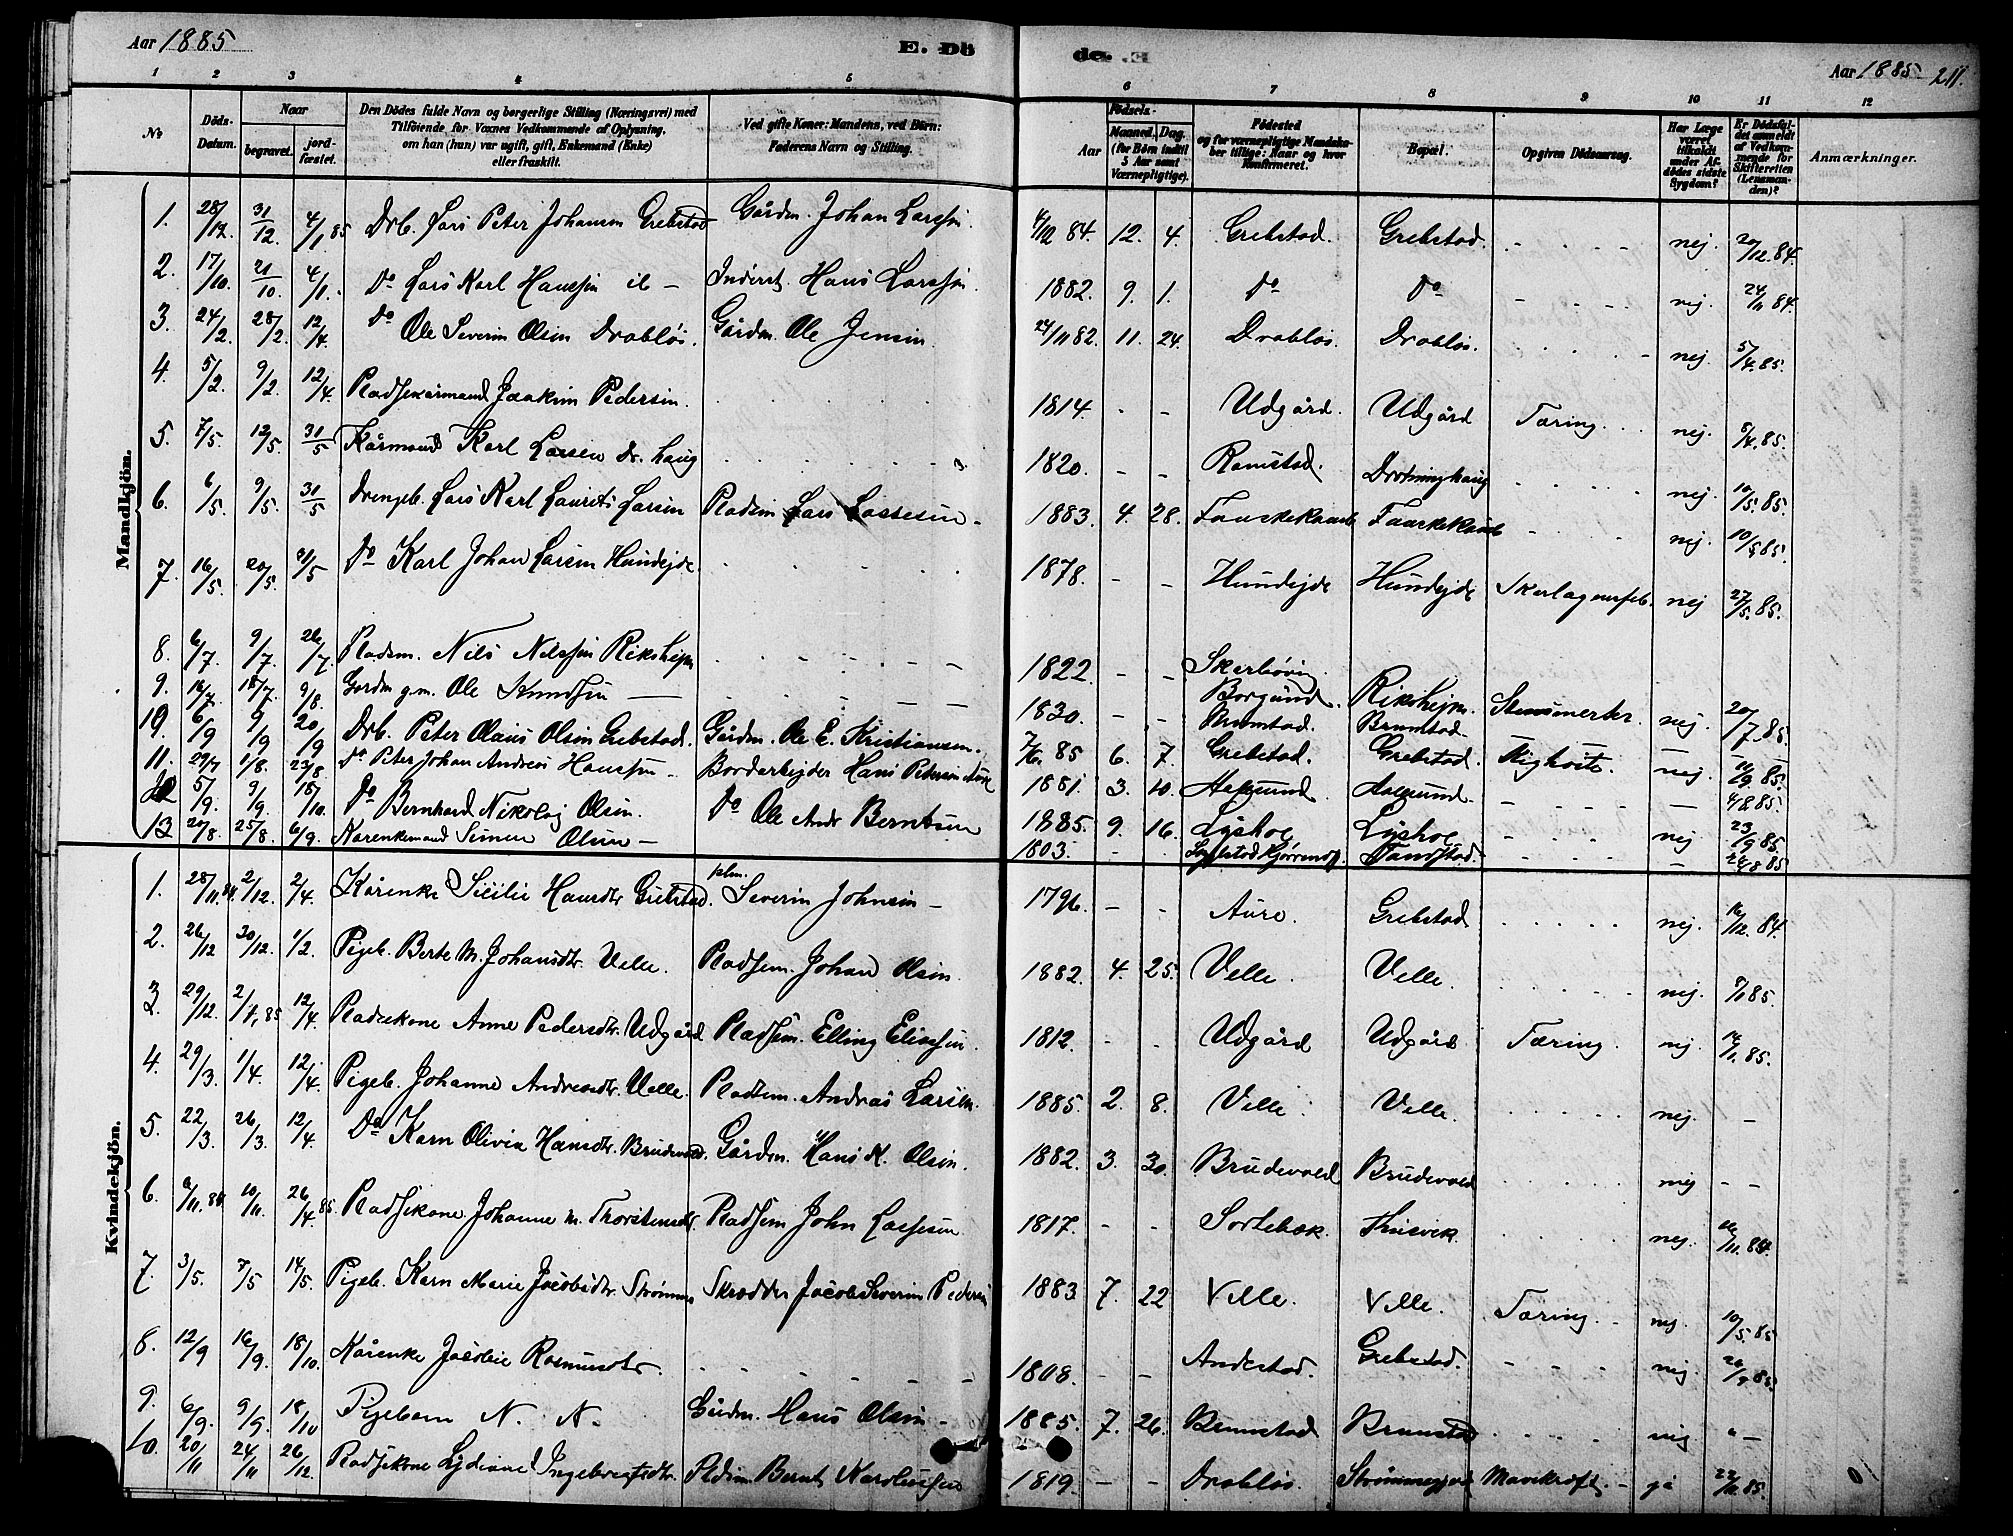 Aar 1885
E. Dö
de. E
Aar 1885
211.
1 2 3 4 5 6 7 8 9 10 11 12
No
Döds-Datum.
Naar
begravet.
jord-fæstet.
Den Dödes fulde Navn og borgerlige Stilling (Næringsvei) med
Tilföiende for Voxnes Vedkommende af Oplysning,
om han (hun) var ugift, gift, Enkemand (Enke)
eller fraskilt.
Ved gifte Koner: Mandens, ved Börn:
Faderens Navn og Stilling.
Födsels-
Aar
Maaned. Dag.
(for Börn indtil
5 Aar samt
Værnepligtige).
Födested
og for værnepligtige Mandskaber tillige: Naar og hvor
Konfirmeret.
Bopæl.
Opgiven Dödsaarsag.
Har Læge
været
tilkaldt
under Afdödes sidste
Sygdom?
Er Dödsfaldet anmeldt
af Vedkommende for
Skifteretten
(Lensmanden)?
Anmærkninger.
Mandkjön.
1. 28/12. 31/12. 4/1 85 Drb. Lars Peter Johansen Grebstad Gårdm. Johan Larssen 4/12 84. 12. 4. Grebstad. Grebstad. nej. 20/12.84.
2. 17/10. 21/10. 4/1. Do Lars Karl Hanssen ib - Inderst. Hans Larssen. 1882. 9. 1. Do Do nej. 24/11 84.
3. 24/2. 28/2. 12/4. Do Ole Severin Olsen Drabløs. Gårdm. Ole Jensen. 24/11 82. 11. 24. Drabløs. Drabløs. nej. 5/4.85.
4. 5/2. 9/2. 12/4. Pladskårmand Joakim Pedersen. 1814. - - Udgård. Udgård Tæring. nej. 8/4.85.
5. 7/5. 12/5. 31/5 Kårmand Karl Larsen Dr. haug 1820. - - Ramstad. Drotninghaug nej. 10/5.85.
6. 6/5. 9/5. 31/5 Drengeb. Lars Karl Laurits Larsen Pladsm Lars Lassesen - 1883. 4. 28. nej. 10/5 85.
7. 16/5. 20/5. 31/5 Do Karl Johan Larsen Hundejde. 1878. - - Hundejde Hundejde nej 27/5.85.
8. 6/7. 9/7. 26/7. Pladsm. Nils Nilssen Rikshejm 1822. - - Rikshejm. nej. 20/7.85.
9. 14/7 18/7. 9/8. Gårdm g.m. Ole Knudsen 1830. - - Brunstad. Brunstad.
10. 6/9 9/9 20/9 Drb. Peter Olaus Olsen Grebstad. Gårdm. Ole E. Kristiansen. 7/6. 85 6. 7. Grebstad. Grebstad. Kighoste. nej. 10/9 85.
11. 29/7 1/8. 23/8. Do Peter Johan Andreas Hanssen - Bordarbejder Hans Petersen Aure 1881. 3. 10. Aasgund. Aasgund. - 4/8 85
12 5/9. 9/9. 18/10. Do Bernhard Nikolaj Olsen. Do Ole Andr Berntsen 1885. 9. 16. Lyshol Lyshol nej 23/9 85
13 20/8. 25/8. 6/9. Kårenkemand Simen Olsen - 1803. - - 24/8 85
Kvindekjön.
1. 28/11.84. 2/12. 2/4. Kårenke Sicilie Hansdtr Grebstad. plm. Severin Johnsen - 1796. - - Aure. Grebstad nej. 16/12. 84.
2. 26/12 30/12. 1/2. Pigeb. Berte M. Johansdtr. Velle. Pladsem. Johan Olsen. 1882. 4. 25. Velle. Velle. nej. 9/1 85.
3. 29/12. 2/1. 85 12/4. Pladsekone Anne Pedersdtr. Udgård Pladsem. Elling Eliassen. 1812. - - Udgård Udgård Tæring. nej. 14/1.85.
4. 29/3. 1/4. 12/4. Pigeb. Johanne Andreasdtr. Velle. Pladsem. Andreas Larsen. 1885. 2. 8. Velle. Velle. nej. -
5. 22/3. 26/3. 12/4. Do Karn Olivia Hansdtr. Brudevold. Gårdm. Hans K. Olsen. 1882. 3. 30. Brudevold Brudevold nej - -
6. 6/11.84 10/11. 26/4. 85. Pladsekone Johanne M. Thorstensdtr. Pladsem John Lassesen 1817. - - Sortebæk. Thusvik. nej. 26/11. 84.
7. 3/5. 7/5 14/5. Pigeb. Karn Marie Jacobsdtr. Strømme Skrædder Jacob Severin Pedersen 1883. 7. 22 Velle. Velle. Tæring. - nej. 10/5 85
8. 12/9 16/9. 18/10. Kårenke Jacobie Rasmusdtr. 1808. - - Andestad. Grebstad. nej. 26/9 85.
9. 6/9. 9/9. 18/10 Pigebarn N. N. Gårdm. Hans Olsen - 1885. 7. 26. Brunstad Brunstad nej -
10. 20/11 24/11 26/12. Pladsekone Lydiane Ingebrigtsdtr. Pldsm. Bernt Karolussen 1819. - - Drabløs. Mavekræft. - ja 22/11.85.